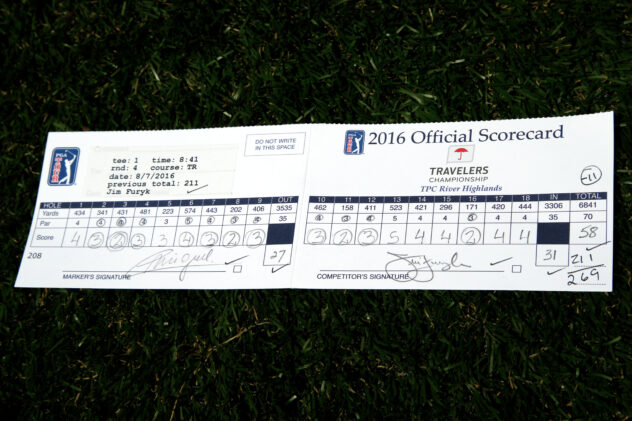 PGA TOUR
tee: 1 time: 8:41
rnd: 4 course: TR
date: 8/7/2016
previous total: 211
Jim Furyk
DO NOT WRITE
IN THIS SPACE
HOLE 1 2 3 4 5 6 7 8 9 OUT
Yards 434 341 431 481 223 574 443 202 406 3535
Par 4 4 4 4 3 5 4 3 4 35
Score 4 3 2 3 3 4 3 2 3
27
208
MARKER'S SIGNATURE
PGA TOUR
2016 Official Scorecard
TRAVELERS
CHAMPIONSHIP
TPC River Highlands
-11
10 11 12 13 14 15 16 17 18 IN TOTAL
462 158 411 523 421 296 171 420 444 3306 6841
4 3 4 5 4 4 3 4 4 35 70
3 2 3 5 4 4 2 4 4 58
31 211
269
COMPETITOR'S SIGNATURE